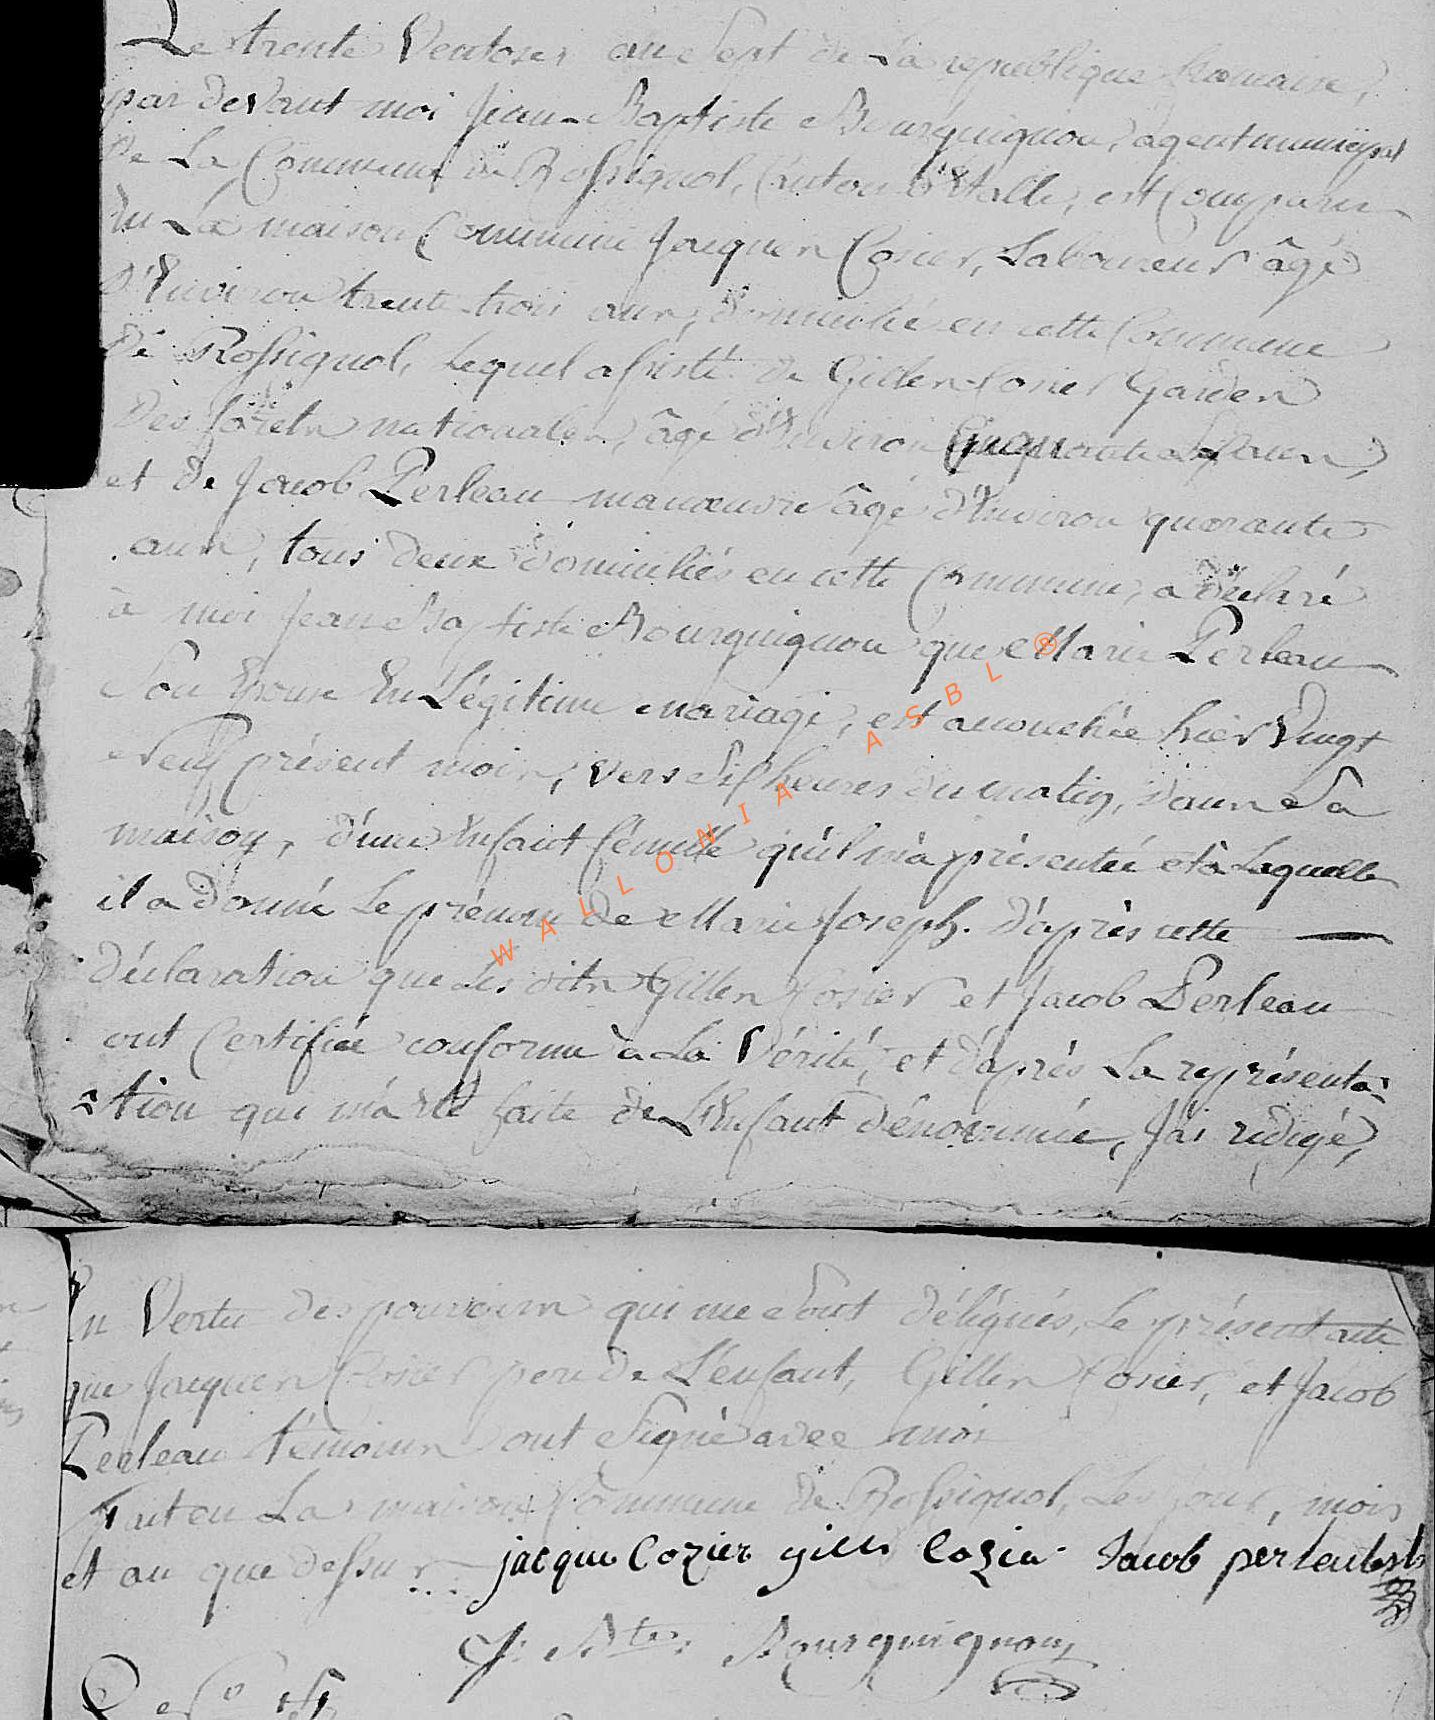 Le trente Ventose, an Sept de La republique francaise,
par devant moi Jean-Baptiste Bourguignon, agent municipal
De La Commune de Rossignol, Canton d'Etalle, est Comparu
En La maison Commune Jacques Cosier, Laboureur âgé
D'Environ trente-trois ans, domicilié en cette Commune
De Rossignol, Lequel assisté de Gilles Cosier Garde
Des forets nationales, âgé d'Environ Cinquante ans,
et de Jacob Perleau manœuvre âgé d'Environ quarante
ans, tous deux domiciliés en cette Commune, a déclaré
à moi Jean Baptiste Bourguignon que Marie Perleau
Son Epouse En Légitime mariage, est accouchée hier Vingt
Neuf présent mois, vers Six heures du matin, dans Sa
maison, d'une Enfant fémelle qu'il m'a présentée et à Laquelle
il a donné Le prénom de Marie Joseph. D'après cette
Déclaration que Les dits Gilles Cosier et Jacob Perleau
ont Certifiée conforme à La Vérité, et d'après La représenta-
-tion qui m'a été faite de L'Enfant dénommée, J'ai rédigé,
En Vertu des pouvoirs qui me Sont délégués, Le présent acte
que Jacques Cosier pere de L'enfant, Gilles Cosier, et Jacob
Perleau témoins ont Signé avec moi
Fait en La maison Commune de Rossignol, Les jour, mois
et an que dessus
jacque Cozier gille Cozier Jacob perleau
J. Bte. Bourguignon
WALLONIA ASBL ®